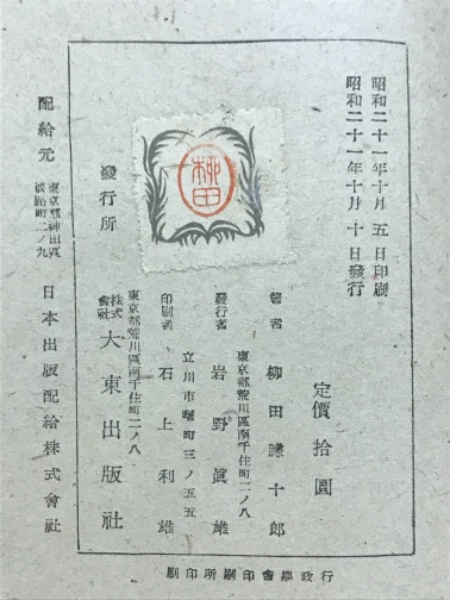 昭和二十一年十月五日印刷
昭和二十一年十月十日發行
定價拾圓
著者 柳田謙十郎
東京都荒川區南千住町二ノ八
發行者 岩野眞雄
立川市曙町三ノ五五
印刷者 石上利雄
東京都荒川區南千住町二ノ八
發行所 株式會社 大東出版社
柳田
配給元 東京都神田區淡路町二ノ九 日本出版配給株式會社
行政學會印刷所印刷